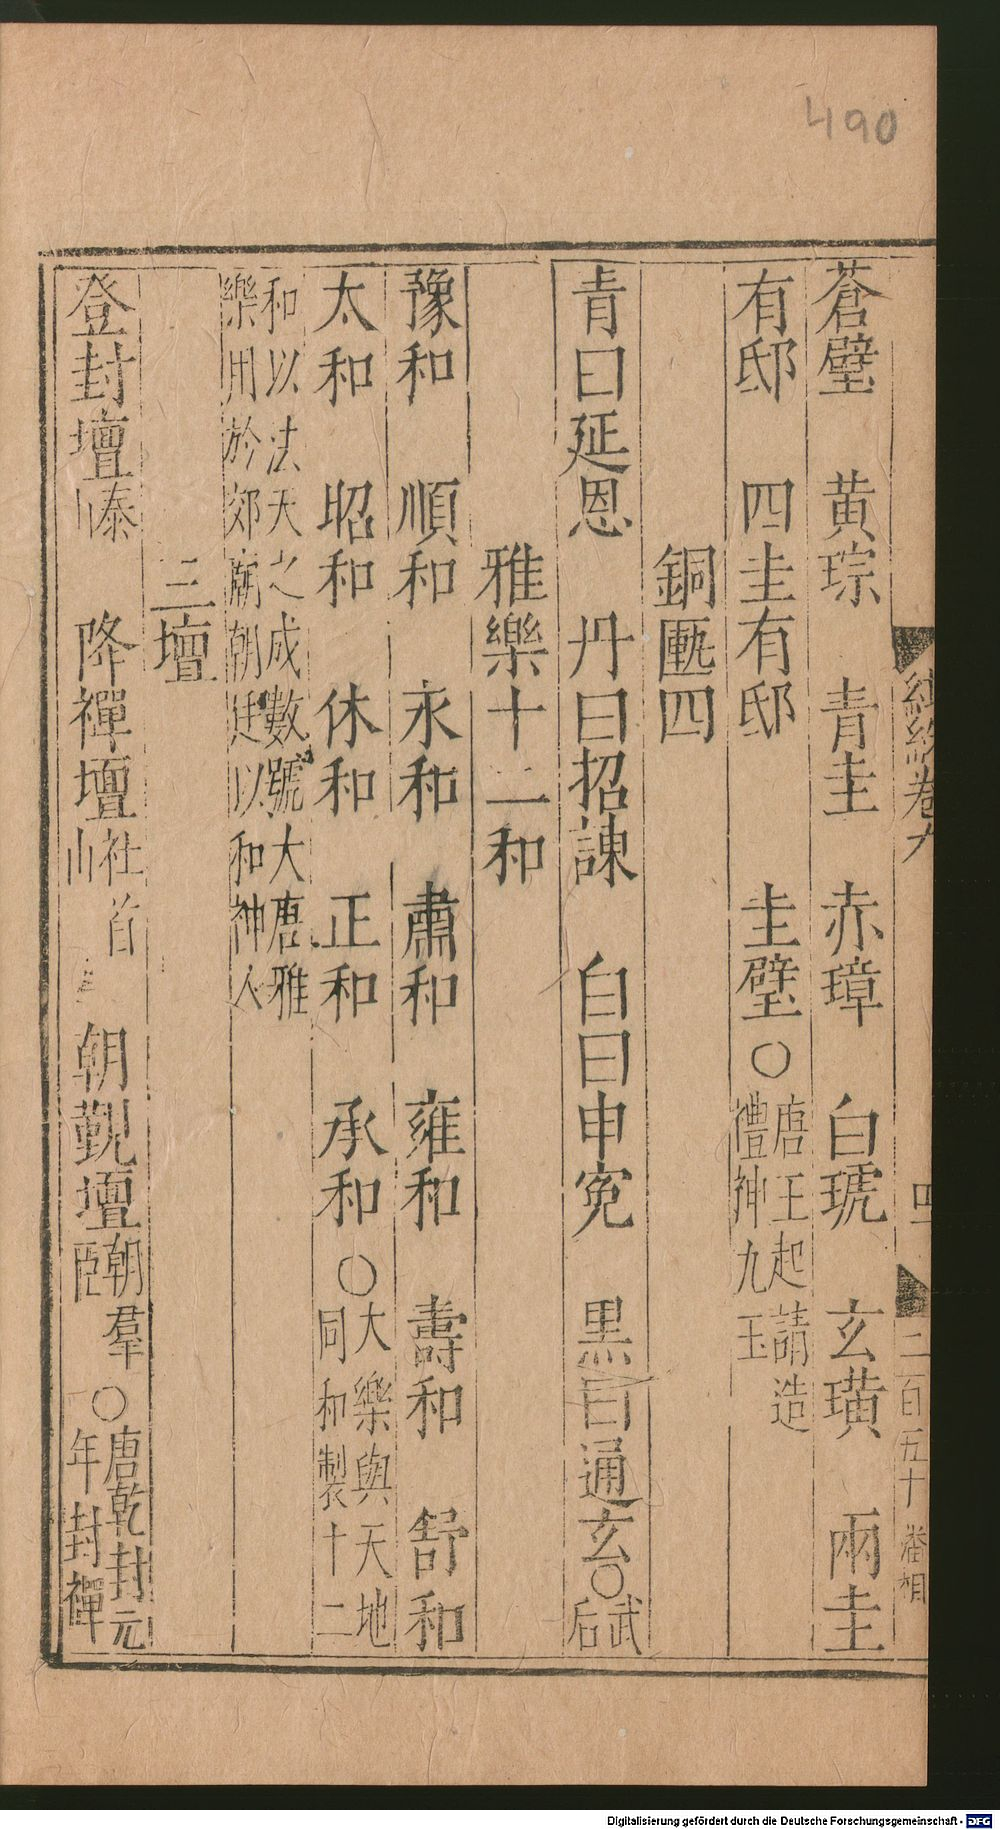 490
蒼璧　黃琮　青圭　赤璋　白琥　玄璜　兩圭
有邸　四圭有邸　圭璧○唐王起請造禮神九玉
銅匭四
青曰延恩　丹曰招諫　白曰申冤　黑曰通玄○武后
雅樂十二和
豫和　順和　永和　肅和　雍和　壽和　舒和
太和　昭和　休和　正和　承和○大樂與天地同和製十二
和以法天之成數號大唐雅樂用於郊廟朝廷以和神人
三壇
登封壇泰山　降禪壇社首山　朝覲壇朝羣臣○唐乾封元年封禪
卷九
四
二百五十
Digitalisierung gefördert durch die Deutsche Forschungsgemeinschaft - DFG